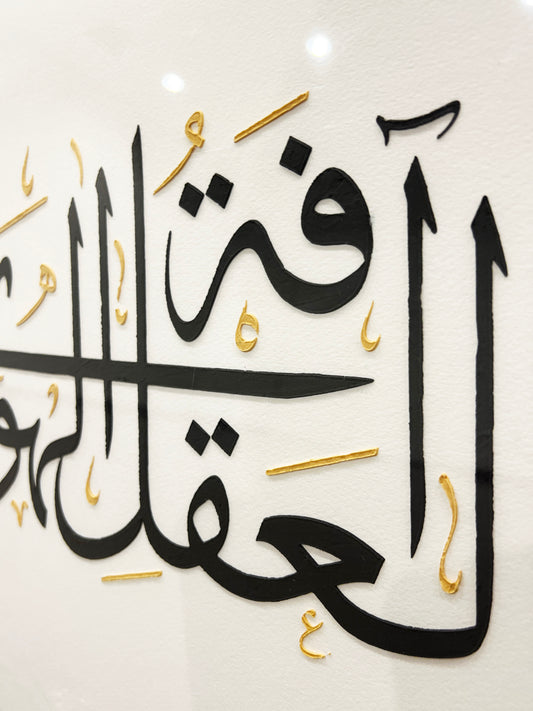 آفة العقل الهوى